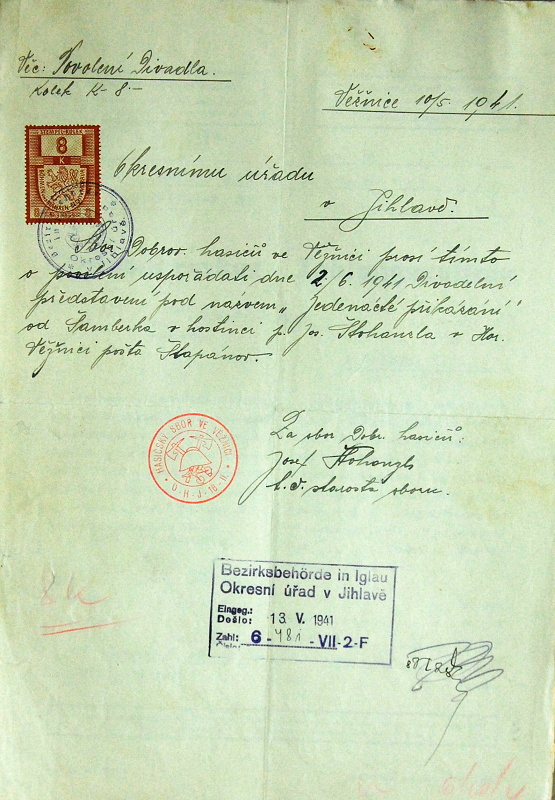 Věc: Povolení Divadla.
Kolek K 8.-
Věžnice 10/5. 1941.
STEMPEL-KOLEK
8
K
Okresnímu úřadu
v Jihlavě.
Sbor Dobrov. hasičů ve Věžnici prosí tímto
o povolení uspořádati dne 2/6. 1941 Divadelní
představení pod názvem „Jedenácté přikázání"
od Šamberka v hostinci p. Jos. Štohanzla v Hor.
Věžnici pošta Štapánov.
HASIČSKÝ SBOR VE VĚŽNICI
O·H·J·18·II.
Za sbor Dobr. hasičů:
Josef Štohanzl
t.č. starosta sboru.
Bezirksbehörde in Iglau
Okresní úřad v Jihlavě
Eingeg.:
Došlo: 13. V. 1941
Zahl: 6-481-VII-2-F
Číslo:
8 k